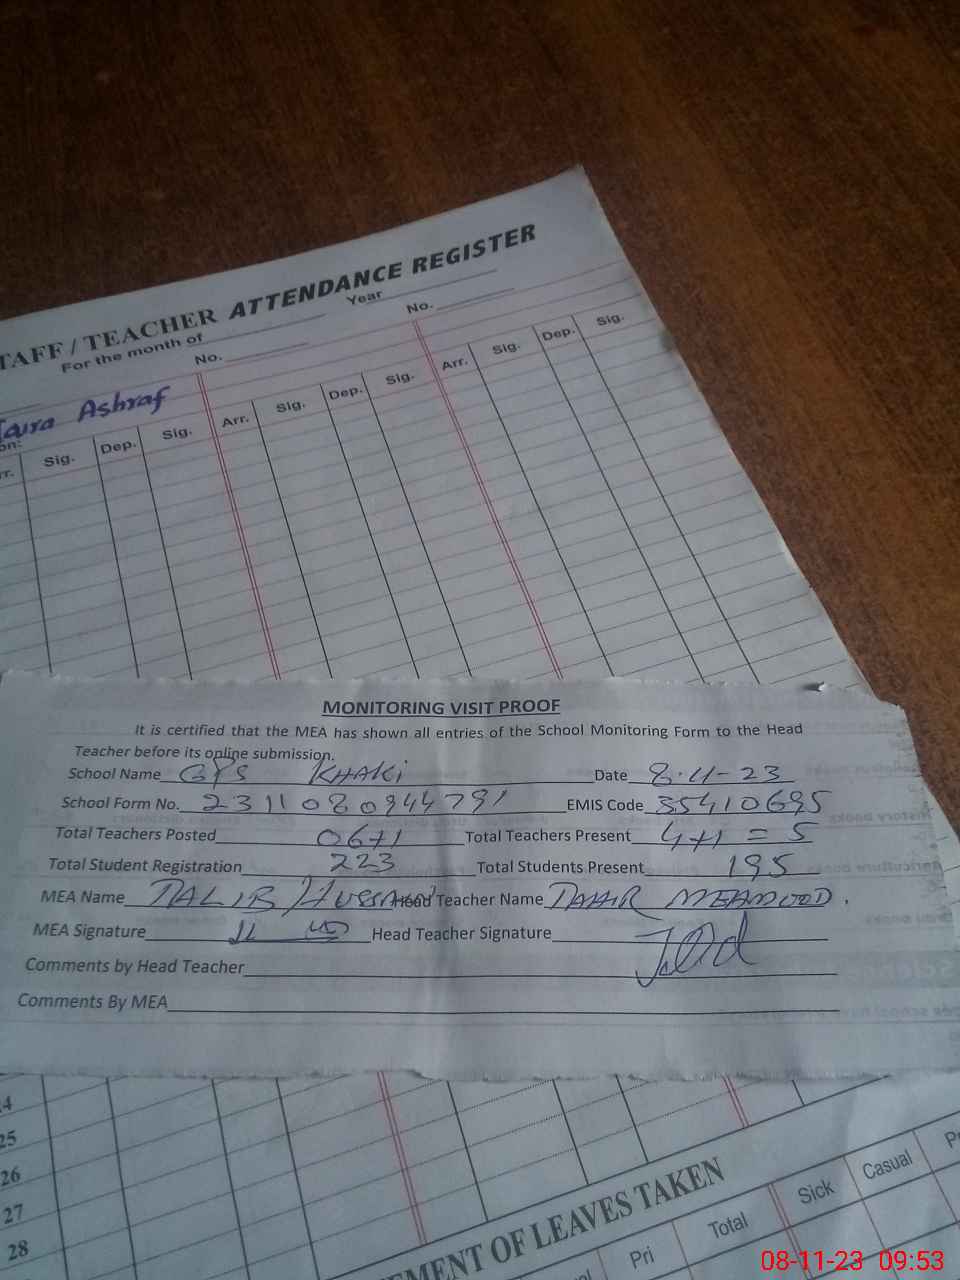 STAFF / TEACHER ATTENDANCE REGISTER
For the month of Year
No. No.
Ashraf
Arr. Sig. Dep. Sig. Arr. Sig. Dep. Sig. Arr. Sig. Dep. Sig.
MONITORING VISIT PROOF
It is certified that the MEA has shown all entries of the School Monitoring Form to the Head
Teacher before its online submission.
School Name KHAKi Date 8-11-23
School Form No. 2311080944791 EMIS Code 35410695
Total Teachers Posted 06+1 Total Teachers Present 4+1 = 5
Total Student Registration 223 Total Students Present 195
MEA Name TALIB Hussain Head Teacher Name TAHIR MEHMOOD.
MEA Signature Head Teacher Signature
Comments by Head Teacher
Comments By MEA
24
25
26
27
28
OF LEAVES TAKEN
Pri Total Sick Casual
08-11-23 09:53